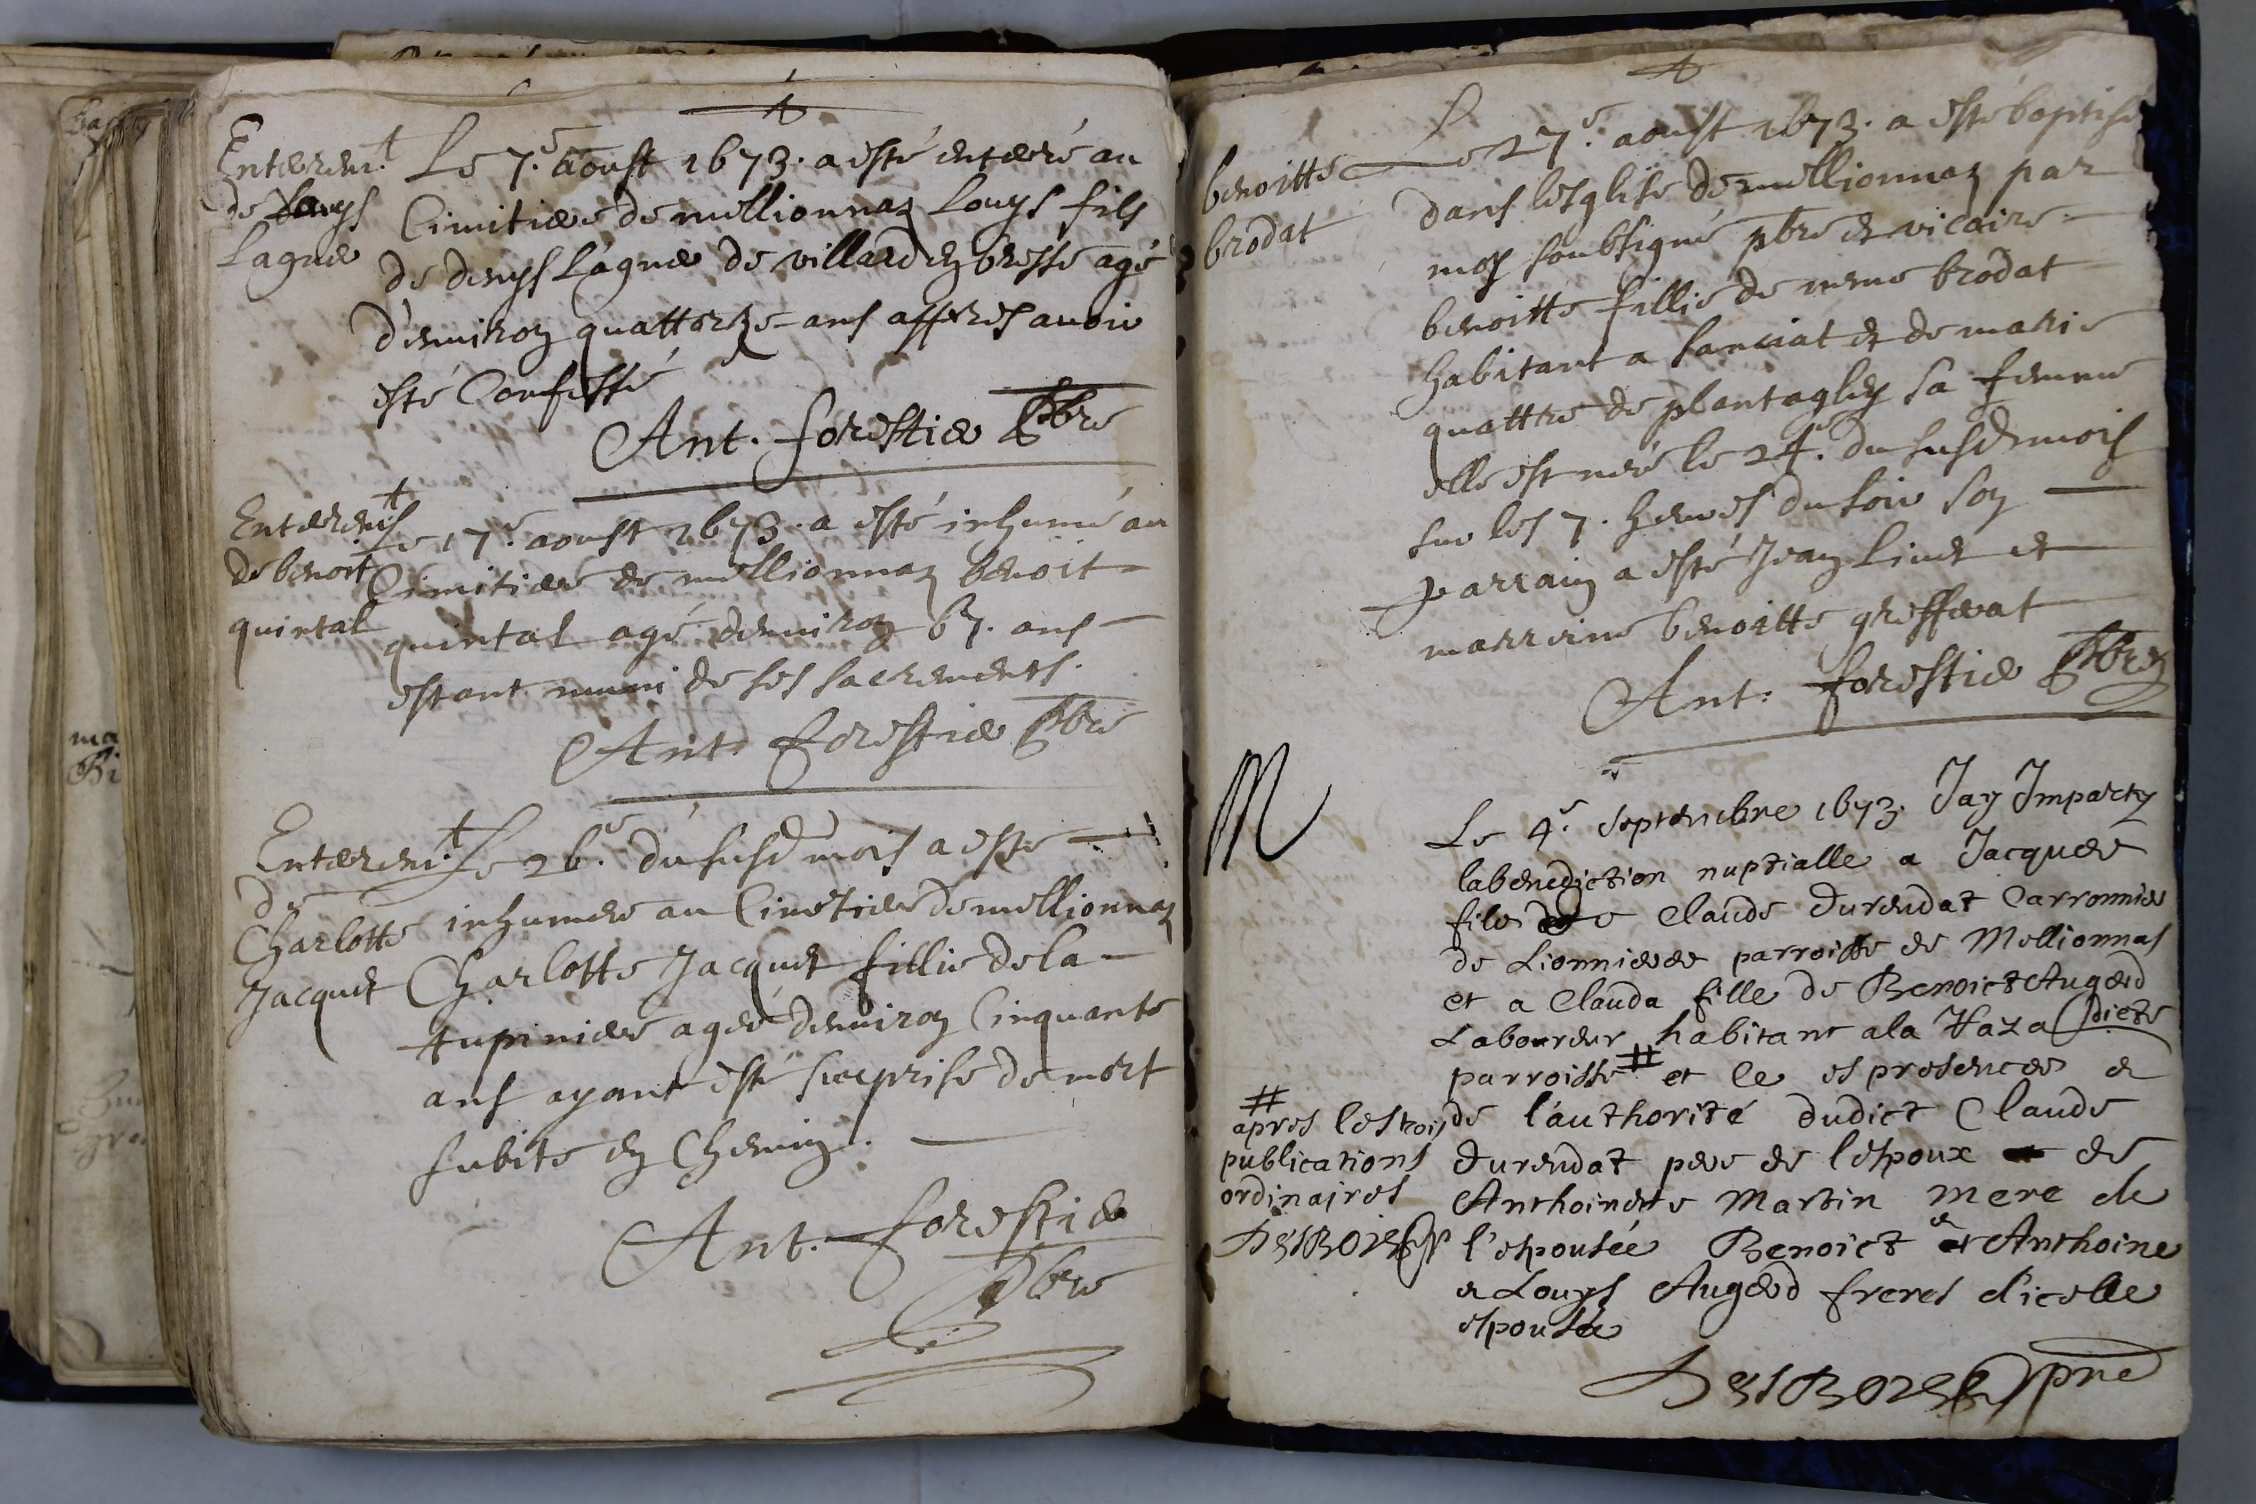 Enterem.t
de Louys
Lagner
Le 7.e aoust 1673. a esté enterré au
Cimitiere de meillionnaz Louys fils
de denys Lagner de villard en bresse agé
d'environ quattorze ans appres avoir
esté Confessé
Ant. forestier pbre
Enterem.t
de benoit
quintal
Le 17.e aoust 1673. a esté inhumé au
Cimitiere de meillionnaz benoit
quintal agé denviron 67. ans
estant muni de ses sacrements.
Ant. forestier pbre
Enterem.t
de
Charlotte
Jacquet
Le 26.e du susd mois a esté
inhumee au Cimetiere de meillionnaz
Charlotte Jacquet fillie de la
tupiniere ageé denviron Cinquante
ans ayant esté surprise de mort
subite en Chemin.
Ant. forestier
pbre
benoitte
brodat
Le 27.e aoust 1673. a esté baptisé
dans lesglise de meillionnaz par
moy soubsigné pbre et vicaire
benoitte fillie de mme brodat
habitant a sanciat et de marie
quattre de plantagley sa femme
elle est neé le 24.e du susd mois
sur les 7. heures du soir son
parrain a esté Jean livet et
marreine benoitte greffeat
Ant. forestier pbre
M
Le 4.e Septembre 1673. Jay Imparty
la benediction nuptialle a Jacques
fils de Claude Durendat Carronnier
de Lionnieres parroisse de Mellionnas
et a Clauda fille de Benoict Augerd
Laboureur habitant a la Vaza dicte
parroisse # et ce es presences et
de l'authorité dudict Claude
Durendat pere de l'espoux de
Anthoinette Martin mere de
l'espouseé Benoict et Anthoine
et Louys Augerd freres d'icelle
espousée
#
apres les trois
publications
ordinaires
DesBorges
DesBorges pbre